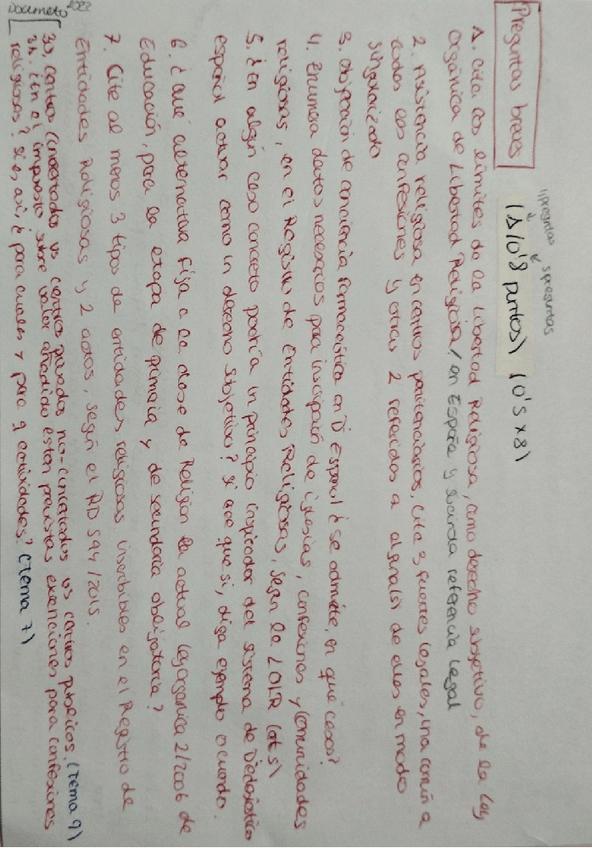 Documento 2022
Preguntas breves
1 pregunta 5 preguntas
(1/0'8 puntos) (0'5 x 8)
1. Cita los límites de la libertad religiosa, como derecho subjetivo, de la Ley
Orgánica de Libertad Religiosa / en España y segunda referencia legal
2. Asistencia religiosa en centros penitenciarios, cita 3 fuentes legales, una común a
todas las confesiones y otras 2 referidas a alguna/s de ellas en modo
singularizado
3. Objeción de conciencia farmacéutica en D. Español ¿se admite, en qué casos?
4. Enumera datos necesarios para inscripción de iglesias, confesiones y comunidades
religiosas, en el Registro de Entidades Religiosas, según la LOLR (art 5)
5. ¿En algún caso concreto podría un principio inspirador del sistema de D. Eclesiástico
español actuar como un derecho subjetivo? Si cree que sí, diga ejemplo o cuando.
6. ¿Qué alternativa fija a la clase de Religión la actual Ley orgánica 2/2006 de
Educación, para la etapa de primaria y de secundaria obligatoria?
7. Cite al menos 3 tipos de entidades religiosas inscribibles en el Registro de
Entidades Religiosas y 2 actos, según el RD 594/2015.
33. Centros Concertados vs centros privados no-concertados vs centros públicos. (Tema 9)
34. ¿En el impuesto sobre valor añadido están previstas exenciones para confesiones
religiosas? Si es así, ¿para cuales y para q actividades? (Tema 7)